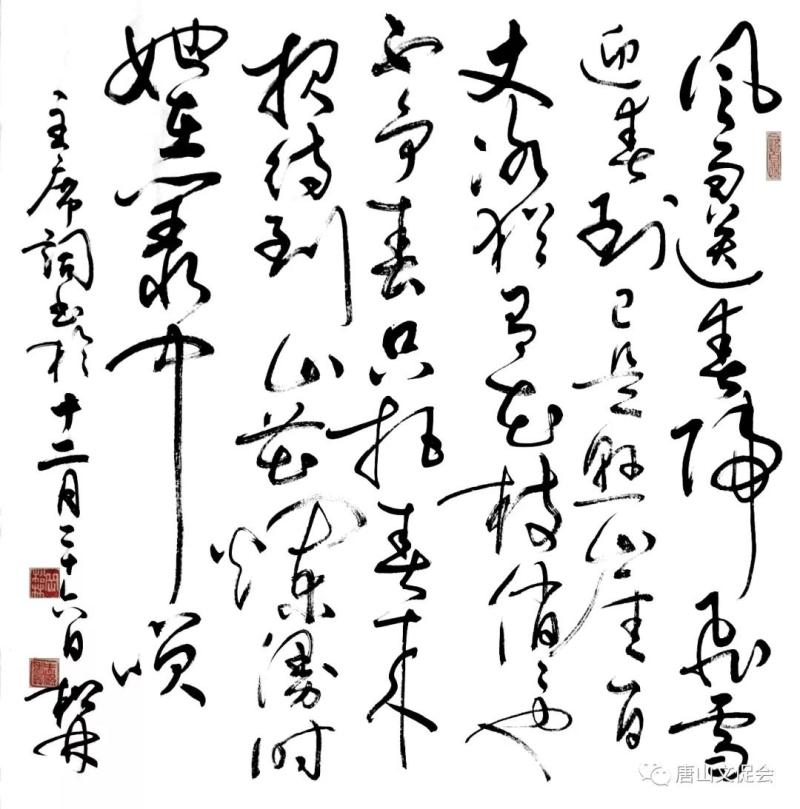 風雨送春帰飛雪
迎春到已是懸崖百
丈冰猶有花枝俏〻也
不争春只把春来
报待到山花爛漫时
她在叢中笑
主席詞书於十二月二十六日
唐山文促会